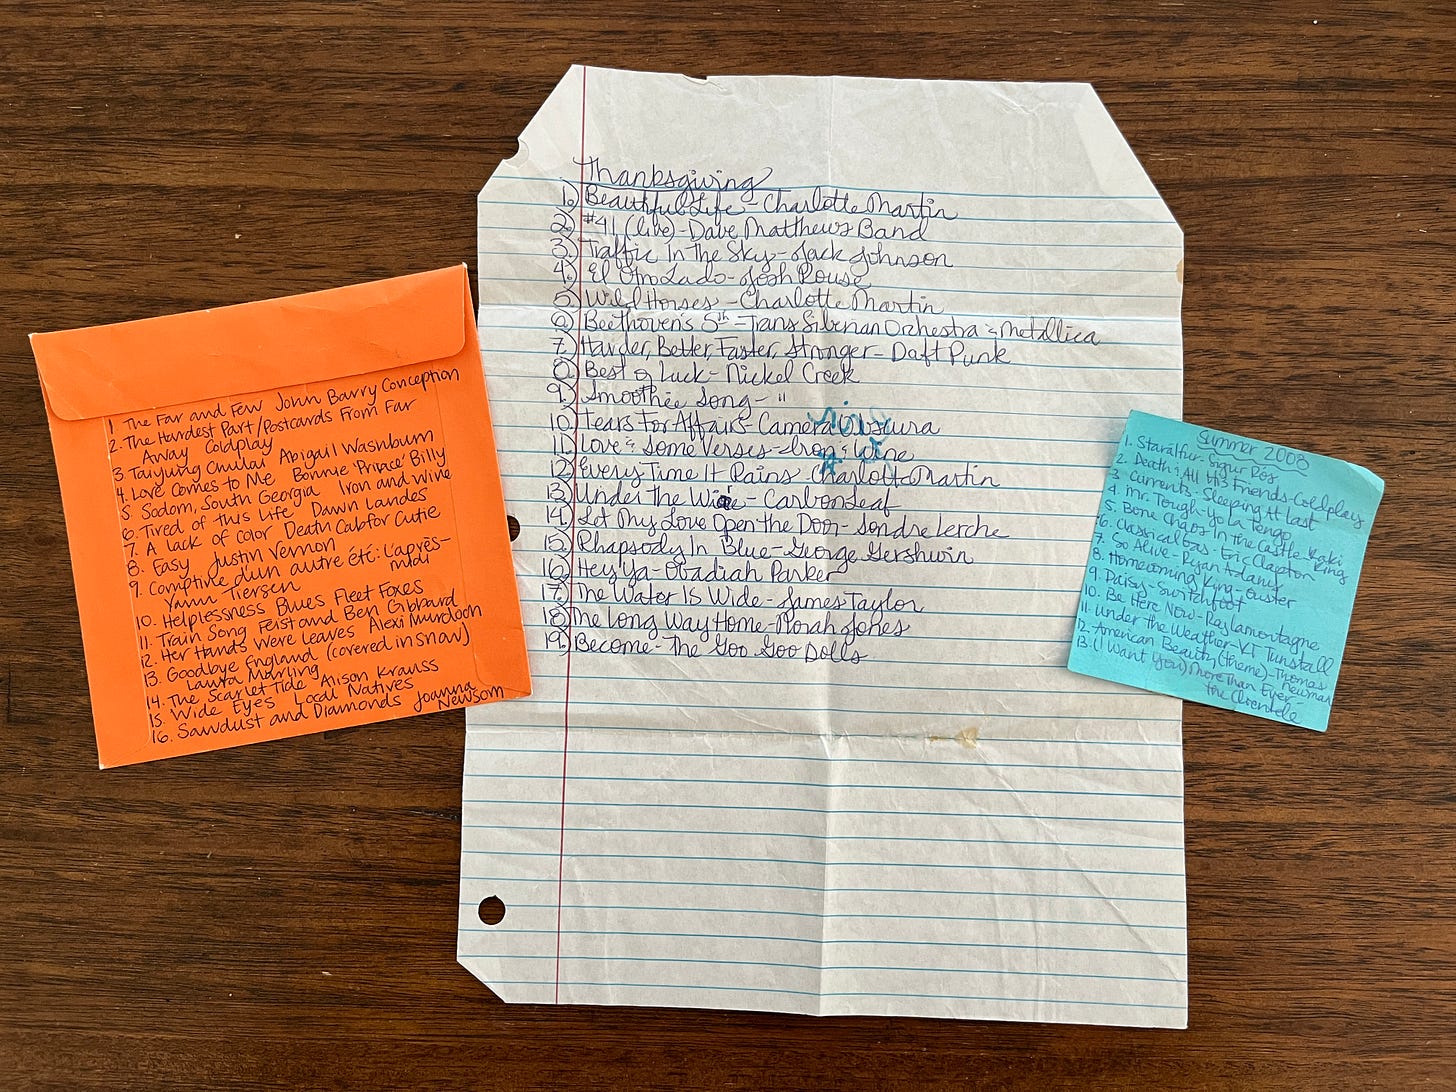 1. The Far and Few John Barry Conception
2. The Hardest Part/Postcards From Far
Away Coldplay
3. Taiyung Chuilai Abigail Washburn
4. Love Comes to Me Bonnie 'Prince' Billy
5. Sodom, South Georgia Iron and Wine
6. Tired of this Life Dawn Landes
7. A lack of Color Death Cab for Cutie
8. Easy Justin Vernon
9. Comptine d'un autre été: L'après-
midi
Yann Tiersen
10. Helplessness Blues Fleet Foxes
11. Train Song Feist and Ben Gibbard
12. Her Hands Were Leaves Alexi Murdoch
13. Goodbye England (covered in snow)
Laura Marling
14. The Scarlet Tide Alison Krauss
15. Wide Eyes Local Natives
16. Sawdust and Diamonds Joanna
Newsom
Thanksgiving
1.) Beautiful Life - Charlotte Martin
2.) #41 (live) - Dave Matthews Band
3.) Traffic In the Sky - Jack Johnson
4.) El Otro Lado - Josh Rouse
5.) Wild Horses - Charlotte Martin
6.) Beethoven's 5th - Trans Siberian Orchestra & Metallica
7.) Harder, Better, Faster, Stronger - Daft Punk
8.) Best of Luck - Nickel Creek
9.) Smoothie Song - "
10.) Tears For Affairs - Camera Obscura
11.) Love & Some Verses - Iron & Wine
12.) Every Time It Rains - Charlotte Martin
13.) Under the Wire - Carbon Leaf
14.) Let My Love Open the Door - Sondre Lerche
15.) Rhapsody In Blue - George Gershwin
16.) Hey Ya - Obadiah Parker
17.) The Water Is Wide - James Taylor
18.) The Long Way Home - Norah Jones
19.) Become - The Goo Goo Dolls
Summer 2008
1. Starálfur - Sigur Rós
2. Death & All His Friends - Coldplay
3. Currents - Sleeping At Last
4. Mr. Tough - Yo La Tengo
5. Bone Chaos In the Castle - Kaki
King
6. Classical Gas - Eric Clapton
7. So Alive - Ryan Adams
8. Homecoming King - Guster
9. Daisy - Switchfoot
10. Be Here Now - Ray LaMontagne
11. Under the Weather - KT Tunstall
12. American Beauty (theme) - Thomas
Newman
13. (I Want You) More Than Ever -
the Clientele